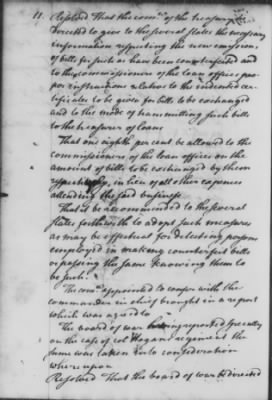 11. Resolved That the com.ee of the treasury be
directed to give to the several states the necessary
information respecting the new emission,
of bills for such as have been counterfeited and
to the commissioners of the loan offices pro-
per instructions relative to the indented cer-
tificates to be given for bills to be exchanged
and to the mode of transmitting such bills
to the treasurer of loans
That one eighth per cent be allowed to the
commissioners of the loan offices on the
amount of bills to be exchanged by them
respectively, in lieu of all other expences
attending the said business.
That it be recommended to the several
states forthwith to adopt such measures
as may be effectual for detecting persons
employed in making counterfeit bills
or passing the same knowing them to
be such.
The com.ee appointed to confer with the
commander in chief brought in a report
which was agreed to
The board of war having reported specially
on the case of col Hogan's regiment the
same was taken into consideration
whereupon
Resolved That the board of war be directed